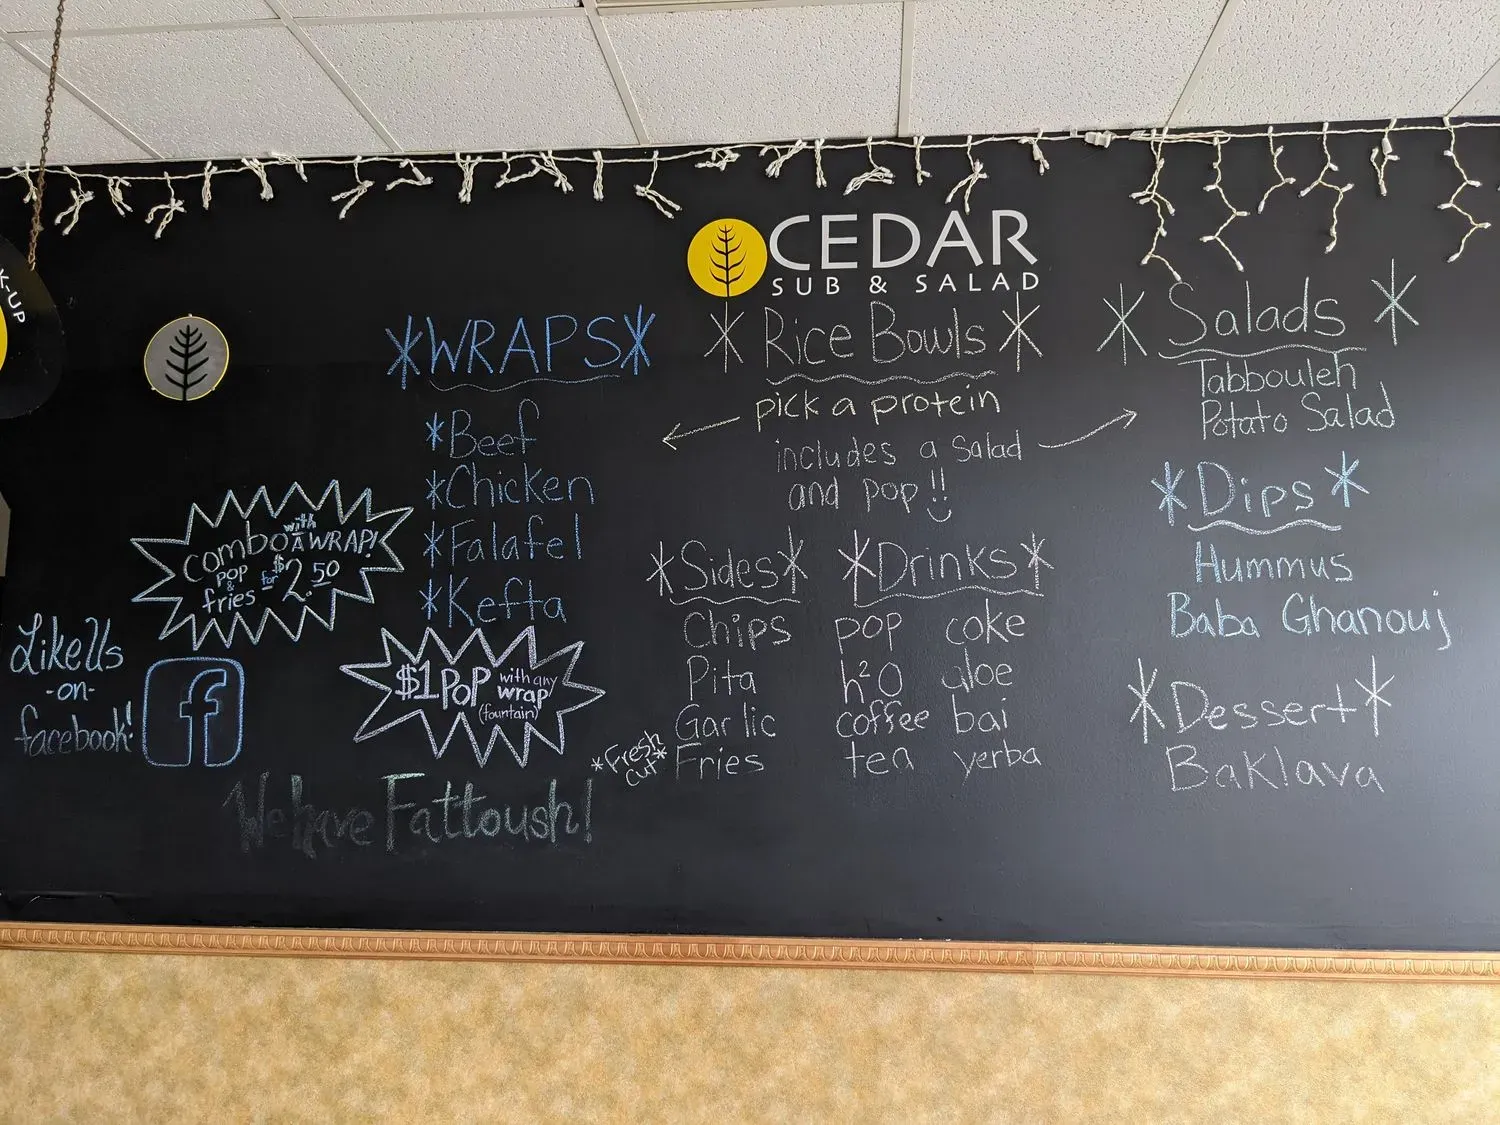 K-UP
CEDAR
SUB & SALAD
*WRAPS*
*Beef
*Chicken
*Falafel
*Kefta
combo with A WRAP!
pop & fries for $2.50
$1 POP with any wrap
(fountain)
Like Us
-on-
facebook!
f
We have Fattoush!
*Rice Bowls*
pick a protein
includes a salad
and pop!!
*Sides*
Chips
Pita
Garlic
*Fresh cut* Fries
*Drinks*
pop coke
h2O aloe
coffee bai
tea yerba
*Salads*
Tabbouleh
Potato Salad
*Dips*
Hummus
Baba Ghanouj
*Dessert*
Baklava